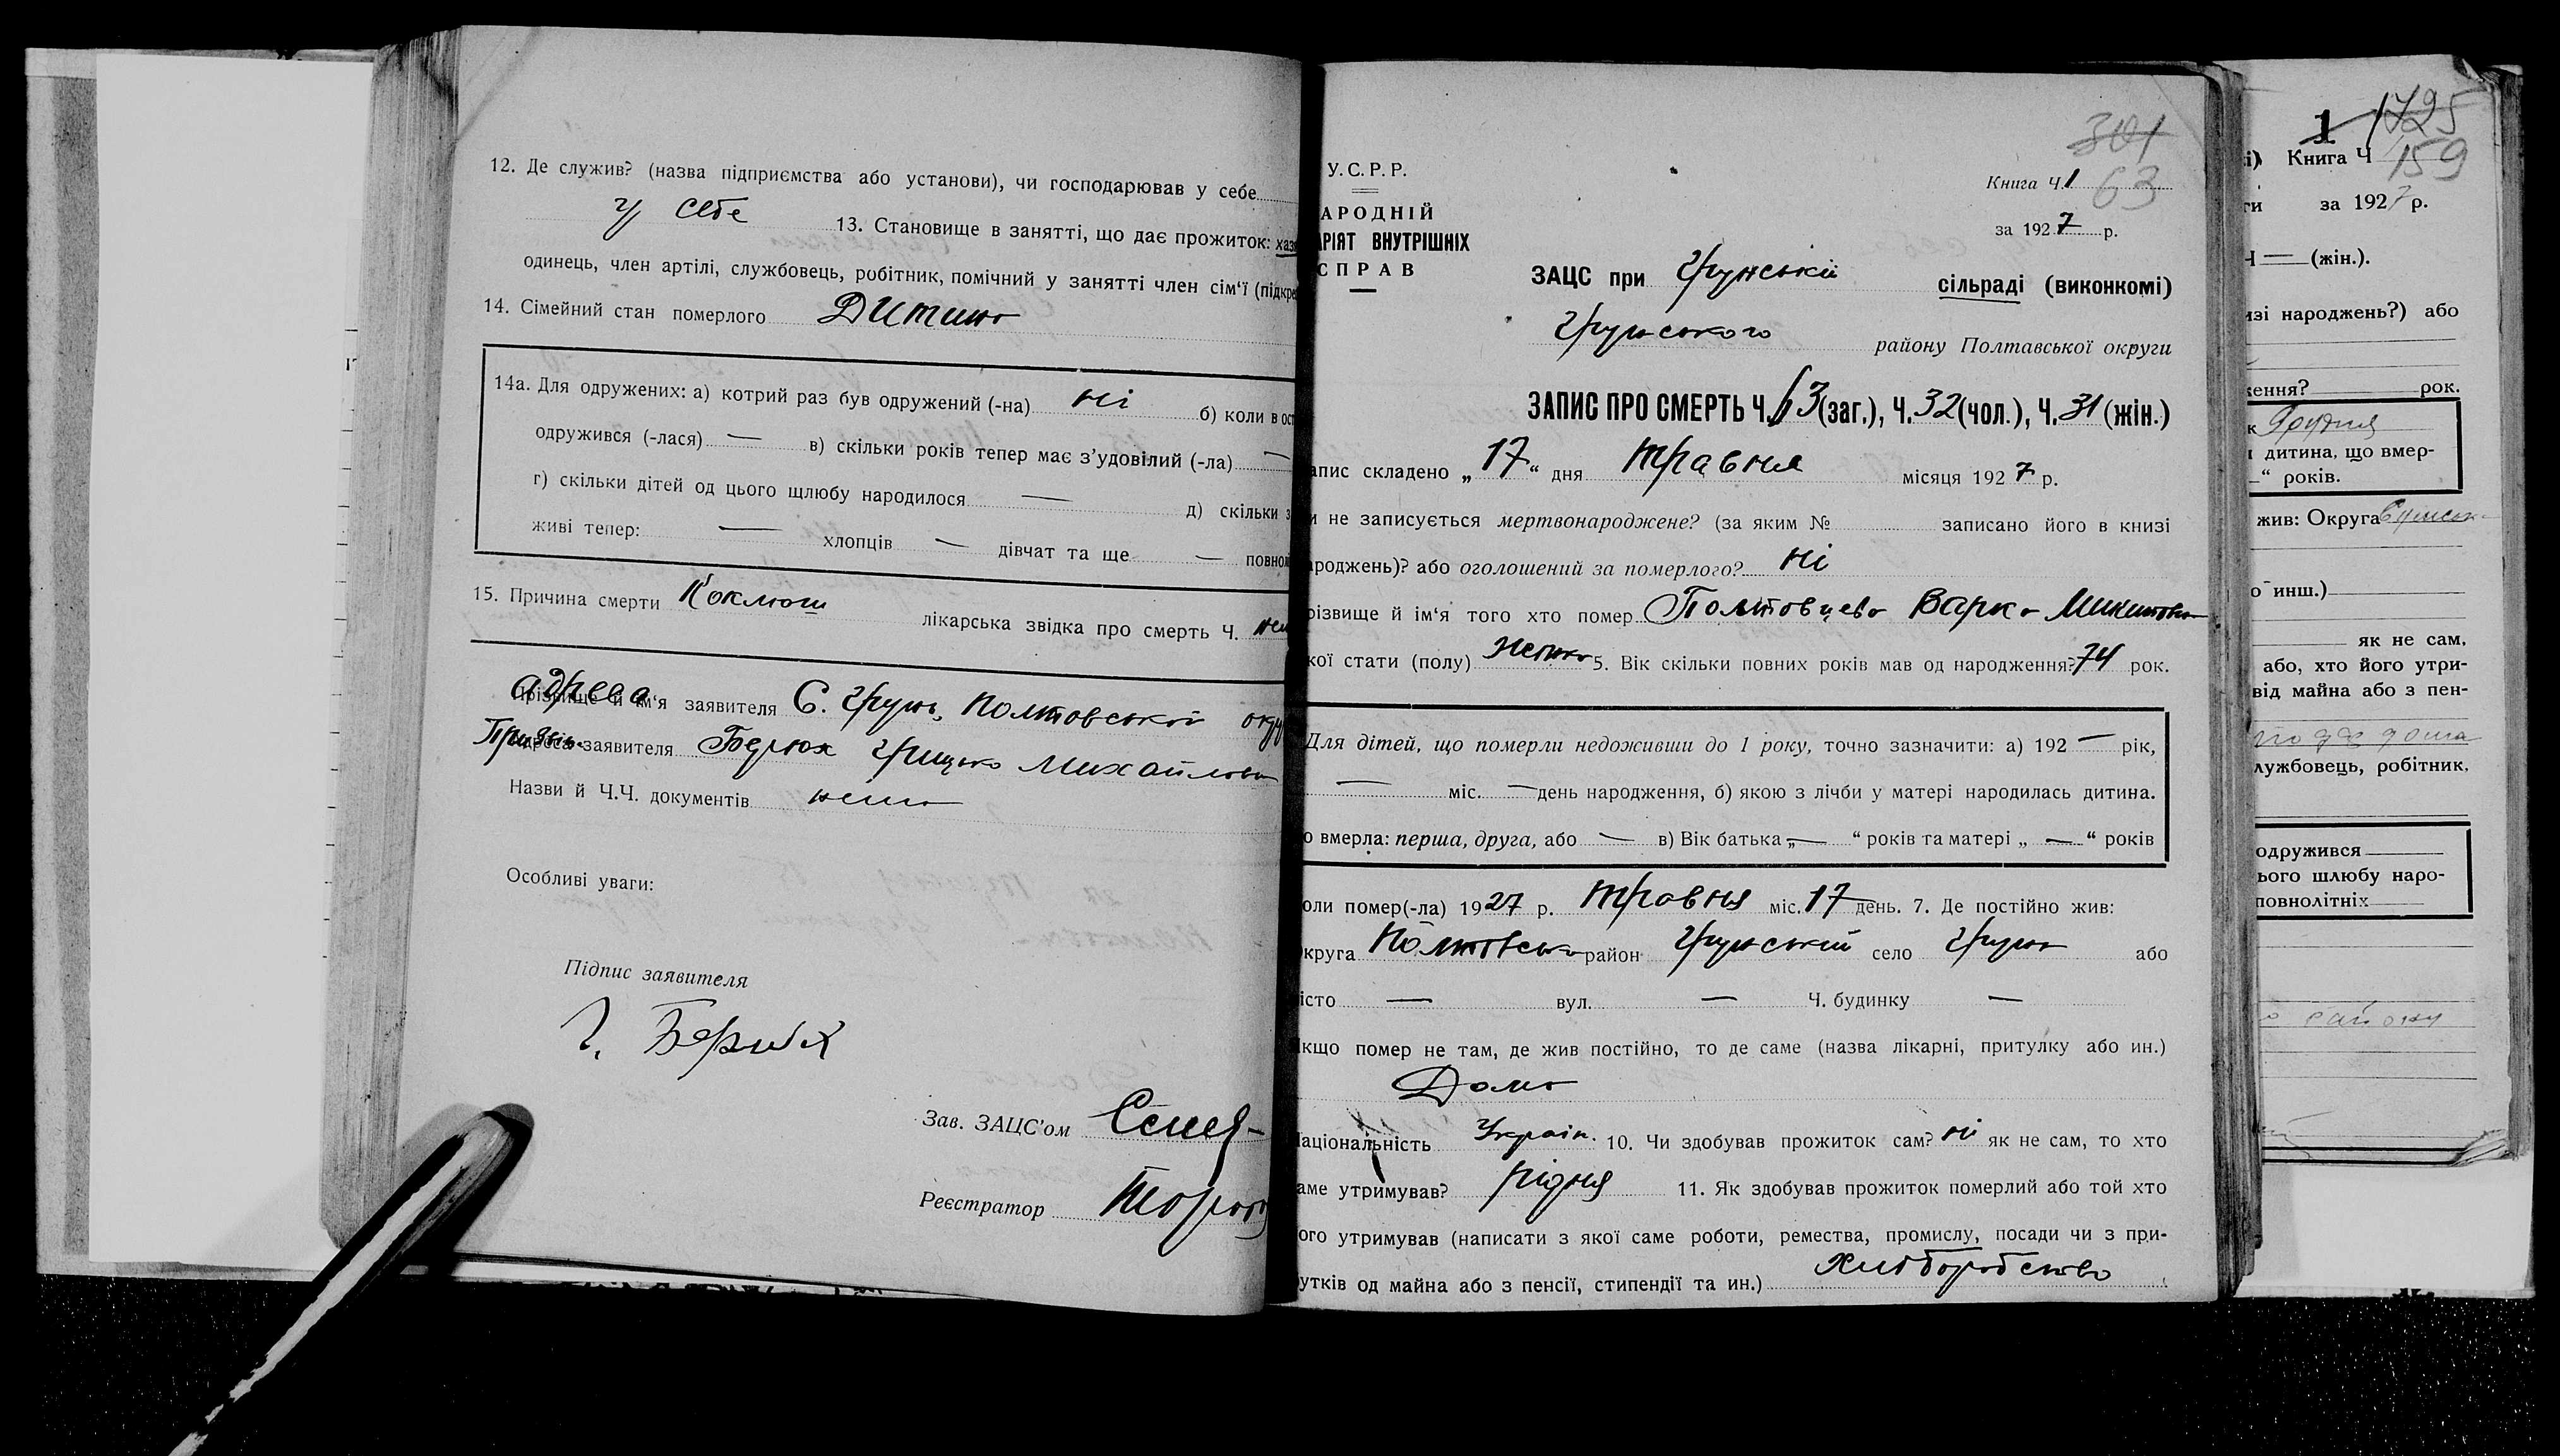 12. Де служив? (назва підприємства або установи), чи господарював у себе
у себе 13. Становище в занятті, що дає прожиток: хаз
одинець, член артілі, службовець, робітник, помічний у занятті член сім‘ї (підкре
14. Сімейний стан померлого Дитина
14а. Для одружених: а) котрий раз був одружений (-на) ні б) коли в ост
одружився (-лася) — в) скільки років тепер має з’удовілий (-ла) —
г) скільки дітей од цього щлюбу народилося — д) скільки з
живі тепер: — хлопців — дівчат та ще — повнол
15. Причина смерти Коклюш лікарська звідка про смерть Ч. нема
адреса
Прізвище й ім‘я заявителя С. Грунь, Полтавської окру
Адреса заявителя Грицько Михайлович
Назви й Ч.Ч. документів нема
Особливі уваги:
Підпис заявителя
Зав. ЗАЦС’ом
Реєстратор
301
У.С.Р.Р.
Книга Ч. 1 63
АРОДНІЙ
АРІЯТ ВНУТРІШНІХ
СПРАВ
за 1927 р.
ЗАЦС при Грунській сільраді (виконкомі)
Грунського району Полтавської округи
ЗАПИС ПРО СМЕРТЬ Ч. 63 (заг.), Ч. 32 (чол.), Ч. 31 (жін.)
апис складено „17“ дня травня місяця 1927 р.
и не записується мертвонароджене? (за яким № записано його в книзі
ароджень)? або оголошений за померлого? ні
різвище й ім‘я того хто помер Полтавцева Варка Микитовна
кої стати (полу) жіноча 5. Вік скільки повних років мав од народження? 74 рок.
Для дітей, що померли недоживши до 1 року, точно зазначити: а) 192 — рік,
— міс. — день народження, б) якою з лічби у матері народилась дитина.
о вмерла: перша, друга, або — в) Вік батька „—“ років та матері „—“ років
оли помер(-ла) 1927 р. травня міс. 17 день. 7. Де постійно жив:
круга Полтавська район Грунський село Грунь або
істо — вул. — Ч. будинку —
кщо помер не там, де жив постійно, то де саме (назва лікарні, притулку або ин.)
Дома
аціональність Україн. 10. Чи здобував прожиток сам? ні як не сам, то хто
аме утримував? рідня 11. Як здобував прожиток померлий або той хто
ого утримував (написати з якої саме роботи, ремества, промислу, посади чи з при-
утків од майна або з пенсії, стипендії та ин.) хліборобство
1 1725
і) Книга Ч 159
ги за 1927 р.
Ч — (жін.).
изі народжень?) або
ження? рок.
к Грудня
дитина, що вмер-
— “ років.
жив: Округа Сумськ
о инш.)
як не сам,
або, хто його утри-
від майна або з пен-
лужбовець, робітник,
одружився
ього шлюбу наро-
повнолітніх